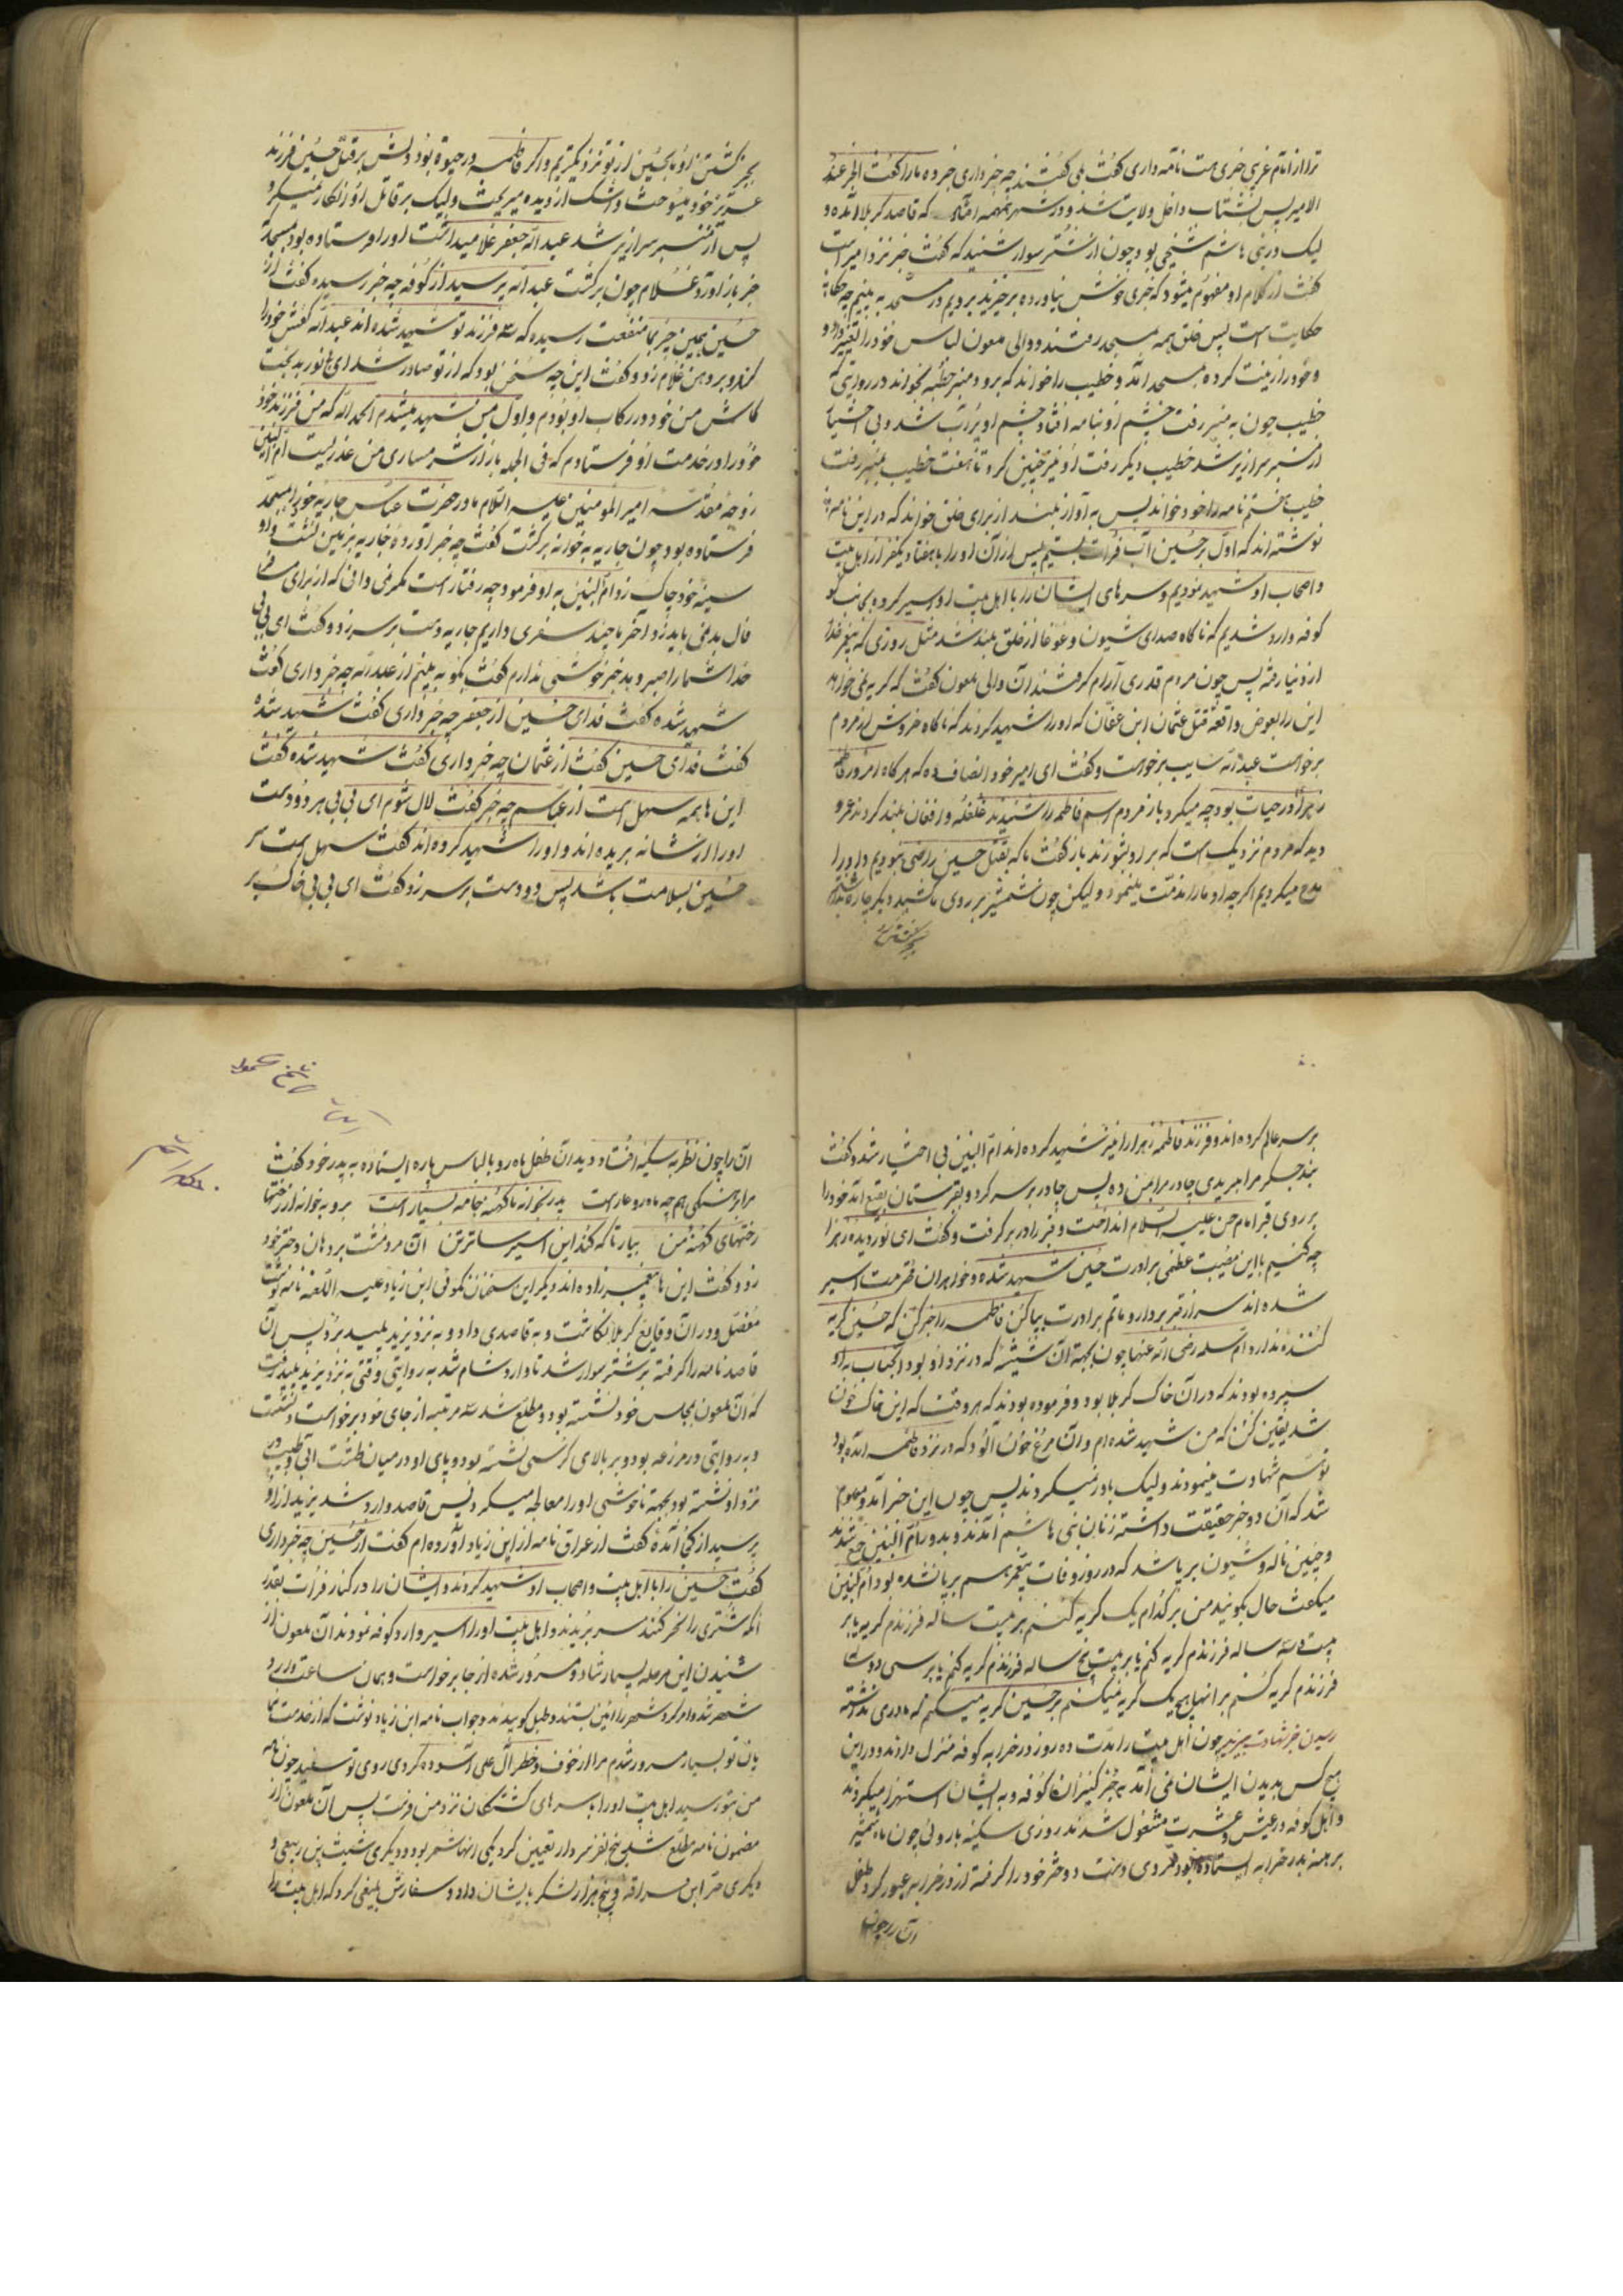 ترا از امام غریب خبری هست نامه داری گفت بلی گفتند چه خبر داری خبر ده ما را گفت الخبر عند
الامیر پس بشتاب داخل ولایت شد و در شهر همهمه افتاد که قاصد کربلا آمده و
لیک در بنی هاشم شیخی بود چون از شتر سوار شنید که گفت خبر نزد امیر است
گفت از کلام او مفهوم میشود که خبری خوش نیاورده برخیزید برویم در مسجد به بینیم چه
حکایت است پس خلق همه بمسجد رفتند و والی ملعون لباس خود را تغییر داد و
و خود را زینت کرده بمسجد آمد و خطیب را خواند که برو و منبر خطبه بخواند در روایتی که
خطیب چون به منبر رفت چشم او بنامه افتاد چشم او پر آب شد و بی اختیار
از منبر سرازیر شد خطیب دیگر رفت او نیز چنین کرد تا هفت خطیب بمنبر رفت
خطیب هشتم نامه را خود خواند پس به آواز بلند از برای خلق خواند که در این نامه
نوشته اند که اول بر حسین آب فرات بستیم پس از آن او را با هفتاد یکنفر از اهل بیت
و اصحاب او شهید نمودیم و سرهای ایشان را با اهل بیت او اسیر کرده بجانب
کوفه وارد شدیم که ناگاه صدای شیون و غوغا از خلق بلند شد مثل روزی که پیغمبر خدا
از دنیا رفته پس چون مردم قدری آرام گرفتند آن والی ملعون گفت که گریه نمی خواهد
این را بعوض واقعه قتل عثمان ابن عفان که او را شهید کردند که ناگاه خروش از مردم
برخواست عبدالله سایب برخواست و گفت ای امیر خود انصاف ده که هر گاه امروز فاطمه
زهرا در حیات بود چه میکرد باز مردم اسم فاطمه را شنیدند غلغله و افغان بلند کردند عمرو
دید که مردم نزدیک است که بر او بشورند باز گفت ما که بقتل حسین راضی نبودیم و او را
مدح میکردیم اگرچه او ما را مذمت مینمود و لیکن چون شمشیر بر روی ما کشید دیگر چاره نداشتیم
بجز کشتن او
بجز کشتن او ما بحسین از تو نزدیکتریم و اگر فاطمه در حیوة بود دلش بر قتل حسین فرزند
عزیز خود میسوخت و اشک از دیده میریخت ولیک بر قاتل او انکار نمیکرد
پس از منبر سرازیر شد عبدالله جعفر غلامی داشت او را فرستاده بود بمسجد
خبر باز آورد غلام چون برگشت عبدالله پرسید از کوفه چه خبر رسیده گفت از
حسین همین چیز بما منفعت رسیده که سه فرزند تو شهید شده اند عبدالله کفش خود را
کند و بر دهن غلام زد و گفت این چه سخن بود که از تو صادر شد ای
کاش من خود در رکاب او بودم و اول من شهید میشدم الحمد الله که من فرزند خود
خود را در خدمت او فرستادم که فی الجمله باز از شرمساری من عذریست ام البنین
زوجه مقدسه امیر المومنین علیه السلام مادر حضرت عباس جاریه خود را بمسجد
فرستاده بود چون جاریه به خوانه برگشت گفت چه خبر آورده جاریه بر زمین نشست و
سینه خود چاک زد ام البنین به او فرمود چه رفتار است مگر نمی دانی که از برای مسافر
فال بد نمی باید زد آخر ما چند سفری داریم جاریه دست بر سر زد و گفت ای بی بی
خدا شما را صبر دهد خبر خوشی ندارم گفت بگو به بینم از عبدالله چه خبر داری گفت
شهید شده گفت فدای حسین از جعفر چه خبر داری گفت شهید شده
گفت فدای حسین گفت از عثمان چه خبر داری گفت شهید شده گفت
این ها همه سهل است از عباس چه خبر گفت لال شوم ای بی بی هر دو دست
او را از شانه بریده اند و او را شهید کرده اند گفت سهل است سر
حسین بسلامت باشد پس دو دست بر سر زد گفت ای بی بی خاک بر
بر سر عالم کرده اند و فرزند فاطمه زهرا را نیز شهید کرده اند ام البنین بی اختیار شد و گفت
بند جگر مرا بریدی چادر مرا بمن ده پس چادر بر سر کرد و بقبرستان بقیع آمد خود را
بر روی قبر امام حسن علیه السلام انداخت و قبر را در بر گرفت و گفت ای نور دیده زهرا
چه کنیم با این مصیبت عظمی برادرت حسین شهید شده و خواهران محترمت اسیر
شده اند سر از قبر بردار و ماتم برادرت بپا کن فاطمه را خبر کن که حسین گریه
کننده ندارد ام سلمه رضی الله عنها چون بجهة آن شیشه که در نزد او بود آنجناب به او
سپرده بودند که در آن خاک کربلا بود و فرموده بودند که هر وقت که این خاک خون
شد یقین کن که من شهید شده ام و آن مرغ خون آلود که در نزد فاطمه آمده بود
توسم شهادت مینمودند ولیک باور نمیکردند پس چون این خبر آمد و معلوم
شد که آن دو خبر حقیقت داشته زنان بنی هاشم آمدند و بدور ام البنین جمع شدند
و چنین ناله و شیون بر پا شد که در روز وفات پیغمبر هم بر پا نشده بود ام البنین
میگفت حال بگوئید من بر کدام یک گریه کنم بر بیست ساله فرزندم گریه یا بر
بیست و سه ساله فرزندم گریه کنم یا بر بیست پنج ساله فرزندم گریه کنم یا بر سی دو ساله
فرزندم گریه کنم بر اینها هیچ یک گریه نمیکنم بر حسین گریه میکنم که مادری نداشته
رسیدن خبر شهادت بیزید چون اهل بیت را مدت ده روز در خرابه کوفه منزل دادند و در این
هیچ کس بدیدن ایشان نمی آمد به جز کنیزان کوفه و به ایشان استهزا میکردند
و اهل کوفه در عیش و عشرت مشغول شدند روزی سکینه با روئی چون ماه شمشیر
برهنه بدر خرابه ایستاده بود مردی دست دو دختر خود را گرفته از در خرابه عبور کرد طفل
آن را چون
آن را چون نظر به سکینه افتاد و دید آن طفل ماه رو با لباس پاره ایستاده به پدر خود گفت
رختهای کهنه من بیار تا که کند این اسیر ساتر تن آن مرد مشت بر دهان دختر خود
زد و گفت این ها پیغمبر زاده اند دیگر این سخنان نگوئی ابن زیاد علیه اللعنه نامه نوشت
مفصل و در آن وقایع کربلا نگاشت و به قاصدی داد و به نزد یزید پلید برد پس آن
قاصد نامه را گرفته بر شتر سوار شد تا وارد شام شد به روایتی وقتی به نزد یزید پلید رفت
که آن ملعون بمجلس خود نشسته بود و مطلع شد سه مرتبه از جای خود برخواست و نشست
و به روایتی در مزرعه بود و بر بالای کرسی نشسته بود و پای او در میان طشت آبی و طبیب
نزد او نشسته بود بجهة ناخوشی او را معالجه میکرد پس قاصد وارد شد یزید از او
پرسید از کجا آمدهٔ گفت از عراق نامه از ابن زیاد آورده ام گفت از حسین چه خبر داری
گفت حسین را با اهل بیت و اصحاب او شهید کردند و ایشان را در کنار فرات بقدر
آنکه شتری را نحر کنند سر بریدند و اهل بیت او را اسیر وارد کوفه نمودند آن ملعون از
شنیدن این مرحله بسیار شاد و مسرور شده از جا برخواست و همان ساعت وارد
شهر شد و امر کرد شهر را آئین بستند و طبل کوبیدند و جواب نامه ابن زیاد نوشت که از خدمت
تو بسیار مسرور شدم مرا از خوف و خطر آل علی آسوده کردی روی تو سفید چون نامه
من بتو رسید اهل بیت او را با سرهای کشتگان نزد من فرست پس آن ملعون از
مضمون نامه مطلع شد پنج نفر سردار تعیین کرد یکی از آنها شمر بود و دیگری شبث بن ربیعی و
دیگری حر ابن سراقه و پنج هزار لشکر بایشان داد و سفارش بلیغی کرد که اهل بیت را